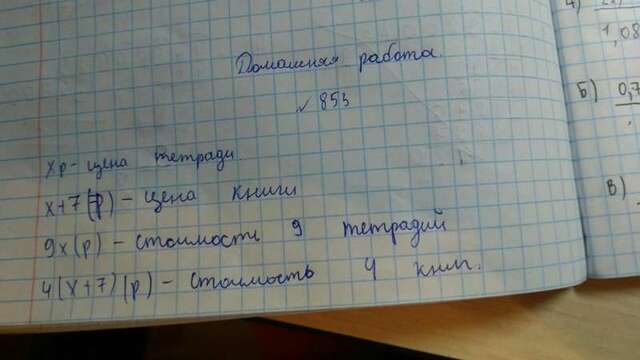 Домашняя работа.
№ 853
xр - цена тетради.
x+7(р) - цена книги
9x(р) - стоимость 9 тетрадий
4(x+7)(р) - стоимость 4 книг.
А)
1,08
Б) 0,7
В)